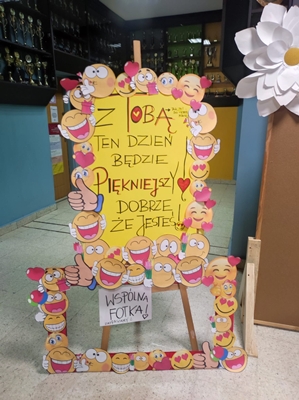 Z TOBĄ
TEN DZIEŃ
BĘDZIE
PIĘKNIEJSZY!
DOBRZE,
ŻE JESTEŚ!
WSPÓLNA
FOTKA!